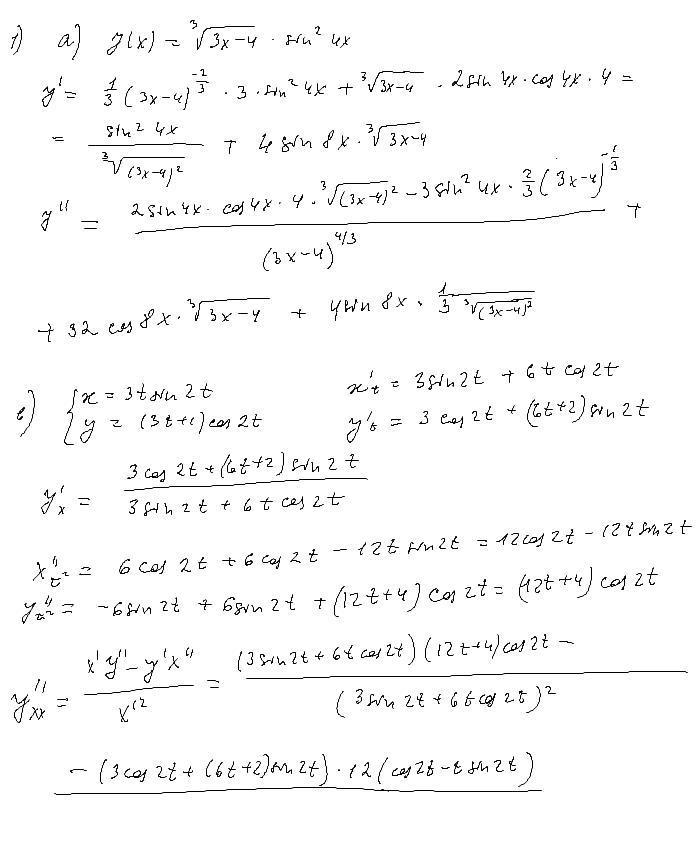 1) a) y(x) = ∛(3x-4) · sin² 4x
y' = 1/3 (3x-4)^(-2/3) · 3 · sin² 4x + ∛(3x-4) · 2sin 4x · cos 4x · 4 =
= sin² 4x / ∛((3x-4)²) + 4 sin 8x · ∛(3x-4)
y'' = (2 sin 4x · cos 4x · 4 · ∛(3x-4)² - 3 sin² 4x · 2/3 (3x-4)^(-1/3)) / (3x-4)^(4/3) +
+ 32 cos 8x · ∛(3x-4) + 4 sin 8x · 1/(3 ∛((3x-4)²))
{ x = 3t sin 2t x't = 3 sin 2t + 6t cos 2t
y = (3t+1) cos 2t y't = 3 cos 2t + (6t+2) sin 2t
y'x = (3 cos 2t + (6t+2) sin 2t) / (3 sin 2t + 6t cos 2t)
x''t² = 6 cos 2t + 6 cos 2t - 12t sin 2t = 12 cos 2t - 12t sin 2t
y'' = -6 sin 2t + 6 sin 2t + (12t+4) cos 2t = (12t+4) cos 2t
y''xx = (x'y'' - y'x'') / x'² = (3 sin 2t + 6t cos 2t)(12t+4) cos 2t - / (3 sin 2t + 6t cos 2t)²
- (3 cos 2t + (6t+2) sin 2t) · 12 (cos 2t - t sin 2t)